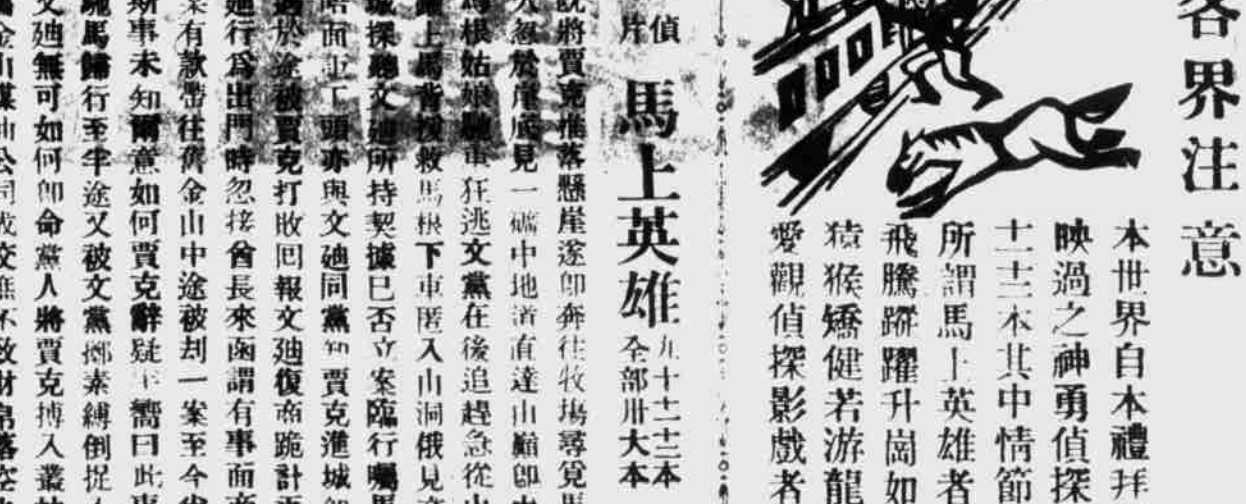 各界注意
本世界自本禮拜
映過之神勇偵探
十二十三本其中情節
所謂馬上英雄者
飛騰躍升崗如
猿猴矯健若游龍
愛觀偵探影戲者
偵
片
馬上英雄
九十十一十二本
全部卅大本
既將賈克推落懸崖遂卽奔往牧塲尋覓馬
人忽於崖底見一礦中地道直達山巔卽
馬根姑娘騎車狂逃文黨在後追趕急從山
上馬背援救馬根下車匿入山洞俄見
城探聽文廸所持契據已否立案臨行囑馬
面工頭亦與文廸同黨知賈克進城
於途被賈克打敗囘報文廸復商詭計
廸行爲出門時忽接會長來函謂有事面
案有款帶往舊金山中途被刦一案至今
斯事未知爾意如何賈克辭疑嚮曰此事
馬歸行至半途又被文黨擲索縛倒捉
文廸無可如何卽命黨人將賈克搏入叢
金山煤油公司